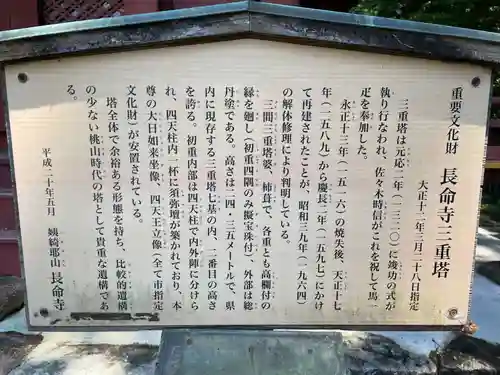 重要文化財 長命寺三重塔
大正十二年三月二十八日指定
三重塔は元応二年（一三二〇）に竣功の式が
執り行なわれ、佐々木時信がこれを祝して馬一
疋を奉加した。
永正十三年（一五一六）の焼失後、天正十七
年（一五八九）から慶長二年（一五九七）にかけ
て再建されたことが、昭和三九年（一九六四）
の解体修理により判明している。
三間三重塔婆、杮葺で、各重とも高欄付の
縁を廻し（初重四隅のみ擬宝珠付）、外部は総
丹塗である。高さは二四・三五メートルで、県
内に現存する三重塔七基の内、二番目の高さ
を誇る。初重内部は四天柱で内外陣に分けら
れ、四天柱内一杯に須弥壇が築かれており、本
尊の大日如来坐像、四天王立像（全て市指定
文化財）が安置されている。
塔全体で余裕ある形態を持ち、比較的遺構
の少ない桃山時代の塔として貴重な遺構であ
る。
平成二十年五月 姨綺耶山 長命寺